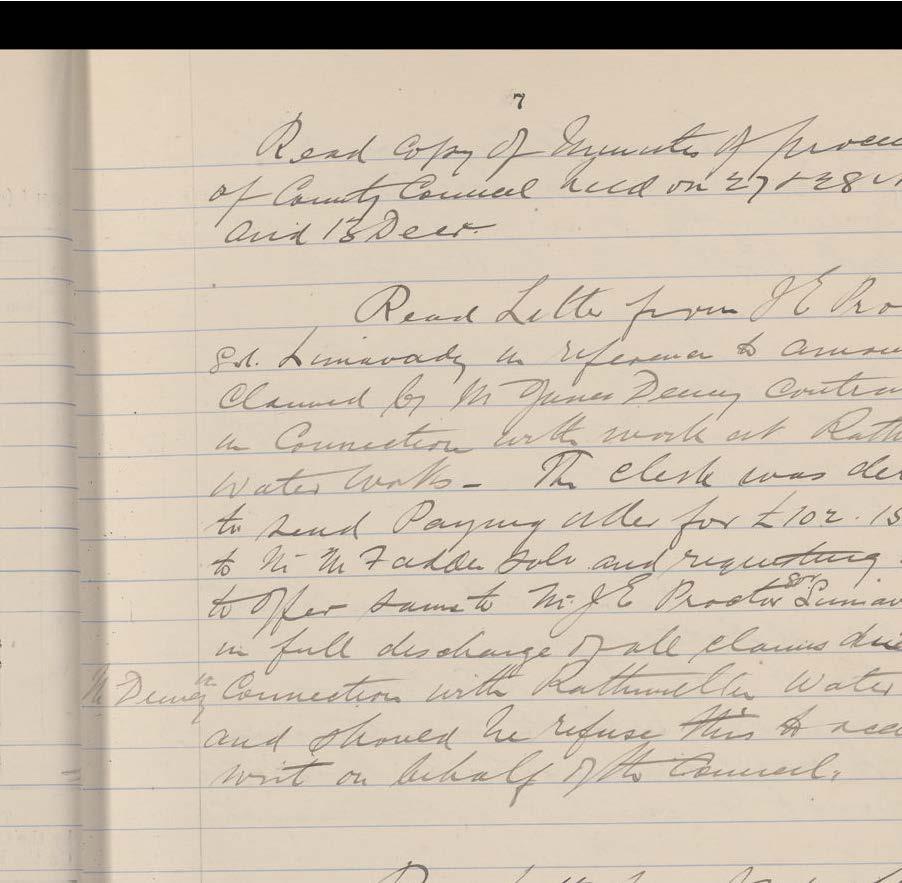 7
Read Copy of Minutes of procee
of County Council held on 27 & 28
and 13 Decr.
Read Letter from J E Pro
Sol. Limavady in reference to amou
Claimed by Mr James Deeny Contra
in Connection with work at Rath
Water Works - The Clerk was
to send Paying Order for £102. 15
to Mr McFadden Solr and requesting
to offer same to Mr. J E Proctor Sor Limav
in full discharge of all claims due
Mr Deeny in Connection with Rathmullen Water
and should he refuse this to acc
writ on behalf of the Council.